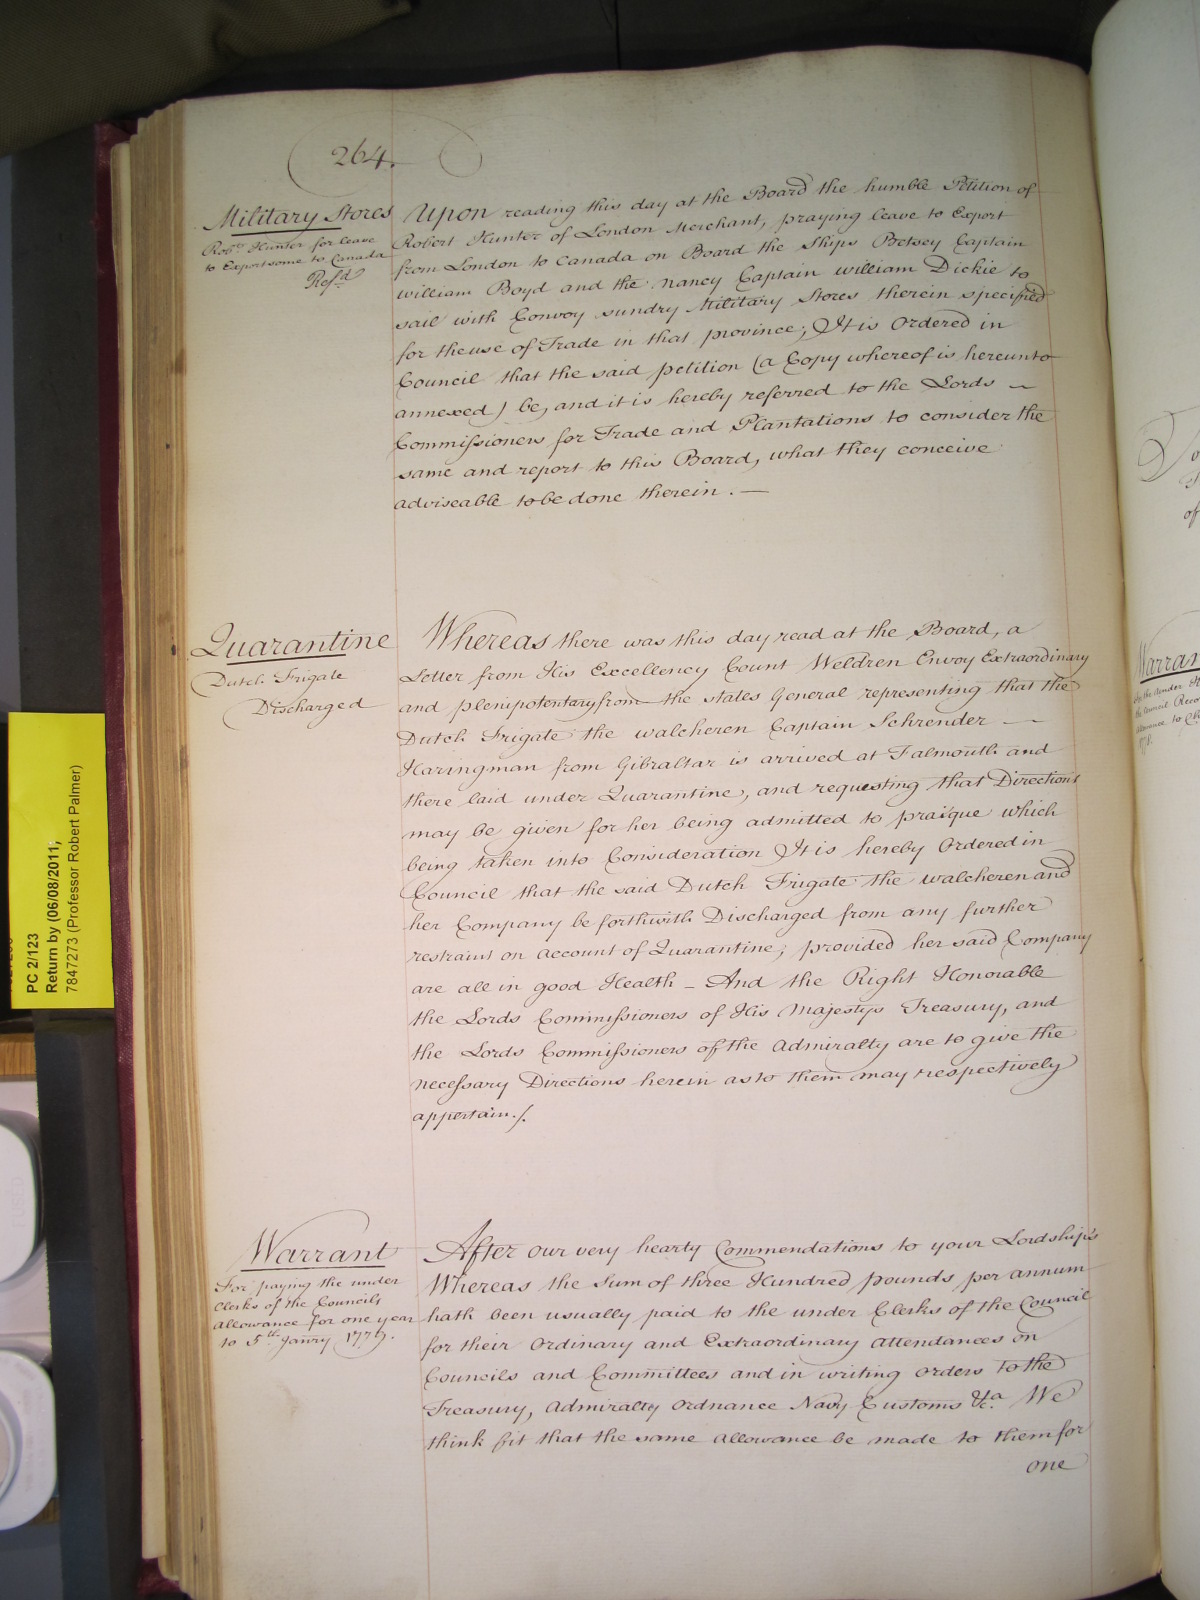 264.
Military Stores
Robt. Hunter for leave
to Export some to Canada
Refd.
Upon reading this day at the Board the humble Petition of
Robert Hunter of London Merchant, praying leave to Export
from London to Canada on Board the Ships Betsey Captain
William Boyd and the Nancy Captain William Dickie to
sail with Convoy sundry Military Stores therein specified
for the use of Trade in that province; It is Ordered in
Council that the said petition (a Copy whereof is hereunto
annexed) be, and it is hereby referred to the Lords
Commissioners for Trade and Plantations to consider the
same and report to this Board, what they conceive
adviseable to be done therein. —
Quarantine
Dutch Frigate
Discharged
Whereas there was this day read at the Board, a
Letter from His Excellency Count Weldren Envoy Extraordinary
and plenipotentary from the States General representing that the
Dutch Frigate the Walcheren Captain Schrender —
Haringman from Gibraltar is arrived at Falmouth and
there laid under Quarantine, and requesting that Directions
may be given for her being admitted to pratique which
being taken into Consideration It is hereby Ordered in
Council that the said Dutch Frigate the Walcheren and
her Company be forthwith Discharged from any further
restraint on account of Quarantine; provided her said Company
are all in good Health – And the Right Honorable
the Lords Commissioners of His Majestys Treasury, and
the Lords Commissioners of the Admiralty are to give the
necessary Directions herein as to them may respectively
appertain./.
Warrant
For paying the under
Clerks of the Councils
allowance for one year
to 5th. Janry 1779.
After our very hearty Commendations to your Lordships
Whereas the Sum of three Hundred pounds per annum
hath been usually paid to the under Clerks of the Council
for their Ordinary and Extraordinary attendances on
Councils and Committees and in writing orders to the
Treasury, Admiralty Ordnance Navy Customs &ca. We
think fit that the same allowance be made to them for
one
PC 2/123
Return by (06/08/2011;
7847273 (Professor Robert Palmer)
of
Warran